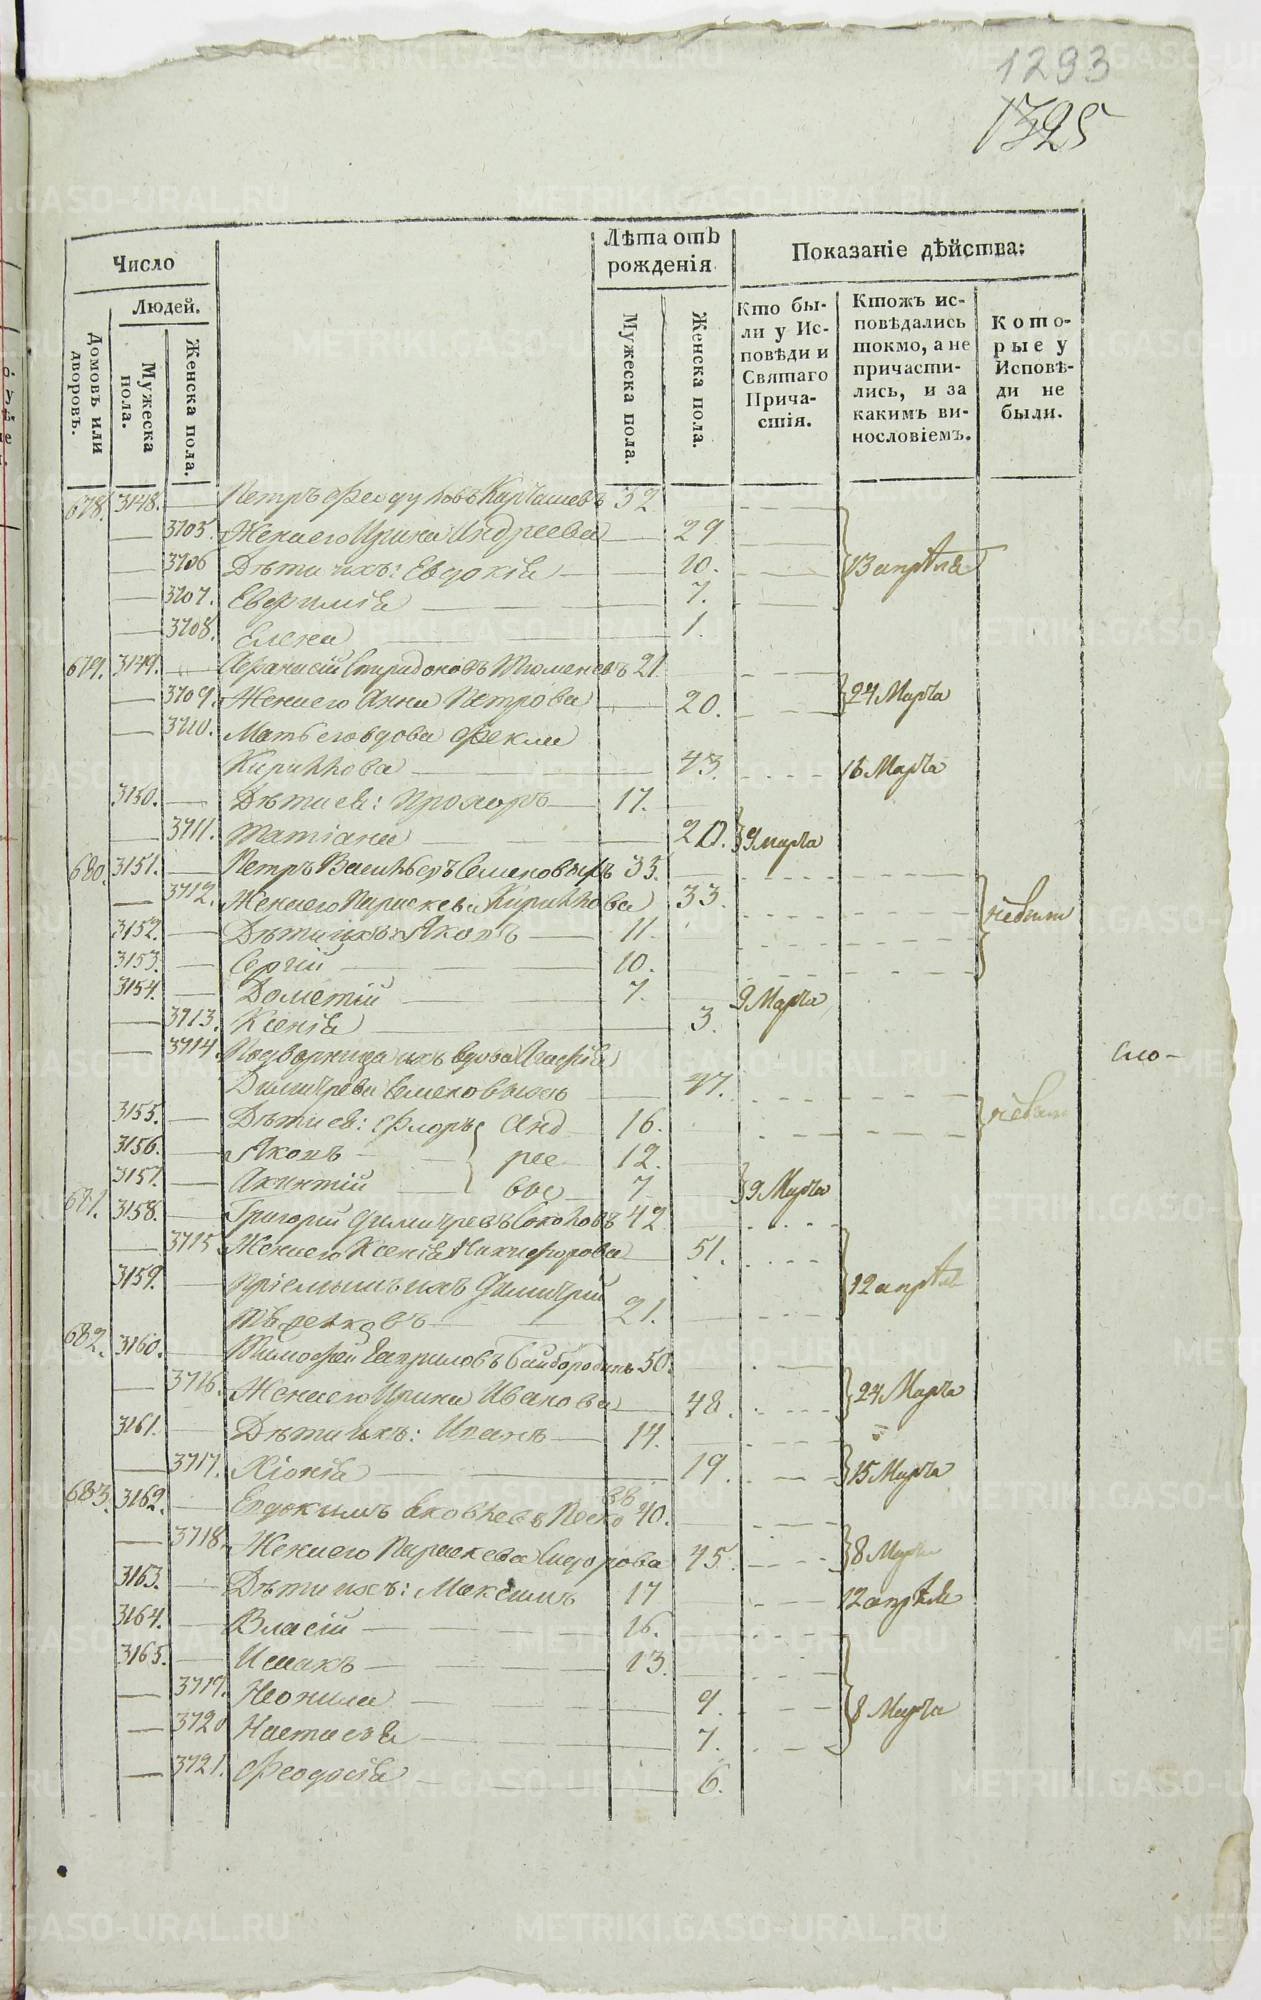 1293
1325
Число
Людей.
Домовъ или дворовъ.
Мужеска пола.
Женска пола.
Лѣта отъ рожденія
Мужеска пола.
Женска пола.
Показаніе дѣйства:
Кто бы-
ли у Ис-
повѣди и
Святаго
Прича-
стія.
Ктожъ ис-
повѣдались
токмо, а не
причасти-
лись, и за
какимъ ви-
нословіемъ.
Кото-
рые у
Исповѣ-
ди не
были.
678. 3148. Петръ Федуловъ Карташевъ 32
3705. Жена его Ирина Андреева 29
3706 Дѣти ихъ: Евдокія 10. 13 апрѣля
3707. Евфимія 7.
3708. Елена 1.
679. 3149. Афанасій Спиридоновъ Тюменевъ 21
3709. Жена его Анна Петрова 20. 24 Марта
3710. Мать его вдова Фекла
Кирилова 43. 16 Марта
3150. Дѣти ея: Прохоръ 17.
3711. Татіана 20. 9 марта
680. 3151. Петръ Васильевъ Семеновыхъ 33.
3712. Жена его Параскева Кирилова 33.
3152. Дѣти ихъ: Яковъ 11.
3153. Сергій 10.
3154. Дометій 7. 9 Марта
3713. Ксенія 3.
3714 вдова
Димитрева Семеновыхъ 47.
3155. Дѣти ея: Флоръ Анд 16.
3156. Яковъ рее 12.
3157. Акинтій вы 7 9 Марта
681. 3158. Григорій Димитревъ Соколовъ 42
3715 Жена его Ксенія Никифорова 51.
3159. Пріемышъ ихъ Димитрій 12 апрѣл
21.
682. 3160. Тимофей Гавриловъ Байбородинъ 50.
3716. Жена его Ирина Иванова 48. 24 Марта
3161. Дѣти ихъ: Иванъ 14.
3717. Хіонія 19. 15 Марта
683. 3162. Евдокимъ Яковлевъ Песковъ 40.
3718. Жена его Параскева Сидорова 45. 8 Марта
3163. Дѣти ихъ: Максимъ 17 12 апрѣля
3164. Власій 16.
3165. Исаакъ 13.
3719. Неонила 9. 8 Марта
3720 Настасья 7.
3721. Феодосія 6.
Спо-
METRIKI.GASO-URAL.RU